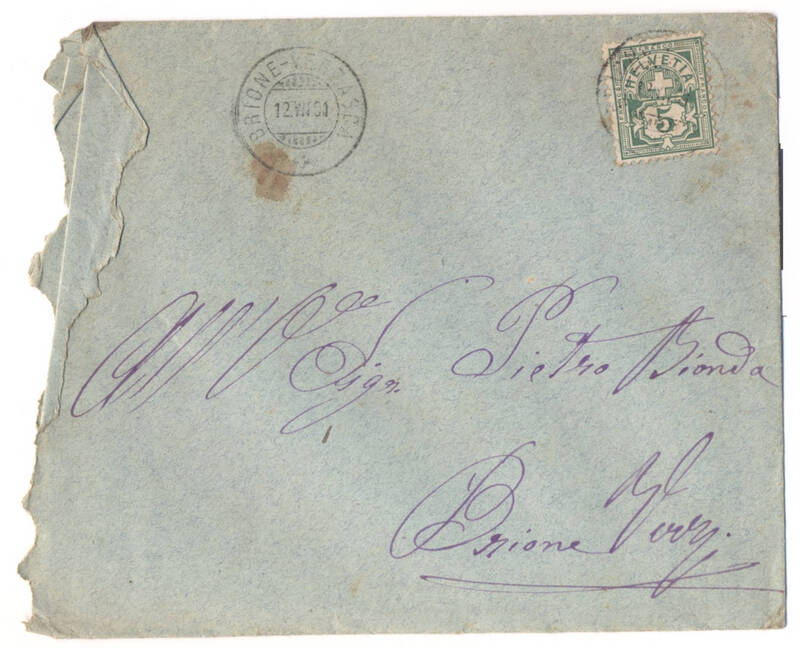 BRIONE-VERZASCA
12.VII.01
FRANCO
HELVETIA
5
All' O
Sign. Pietro Bionda
Brione Verz.